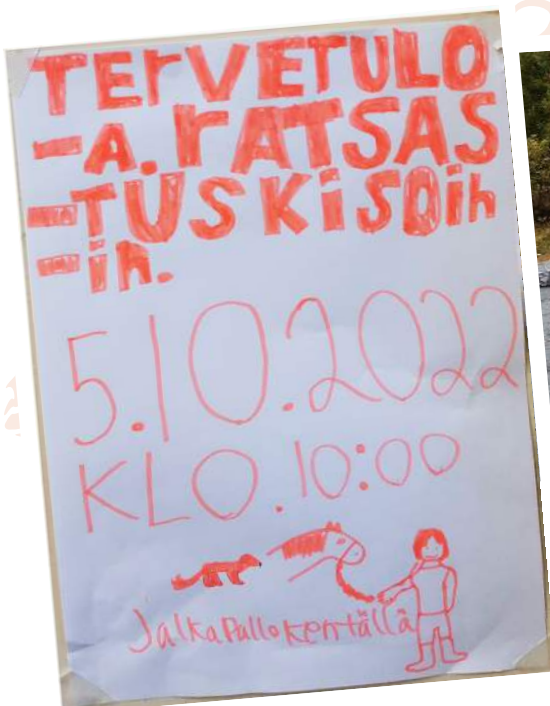 TErVETULO
-A. rATSAS
-TUSKiSOih
-ih.
5.10.2022
KLO. 10:00
Jalkapallokentällä